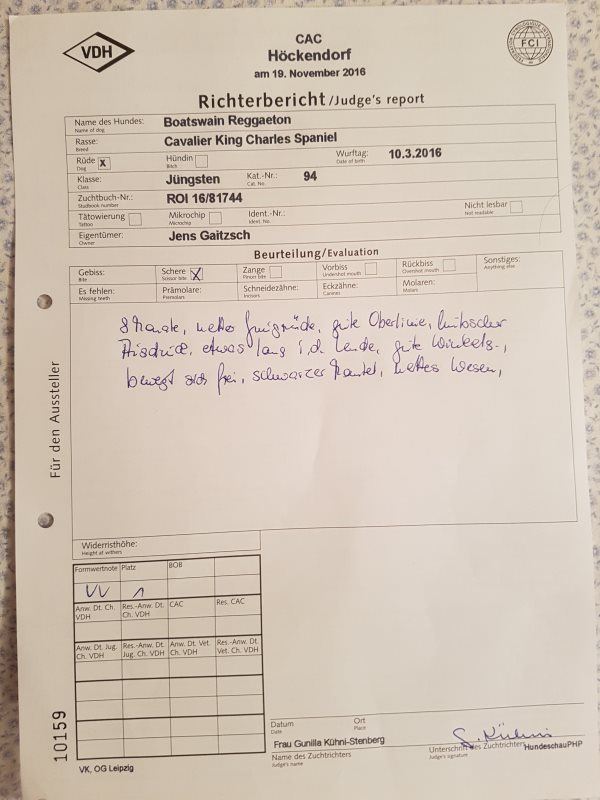 VDH
CAC
Höckendorf
am 19. November 2016
FCI
FEDERATION CYNOLOGIQUE INTERNATIONALE
Richterbericht/Judge's report
Name des Hundes: Boatswain Reggaeton
Name of dog
Rasse: Cavalier King Charles Spaniel
Breed
Rüde x Hündin Wurftag: 10.3.2016
Dog Bitch Date of birth
Klasse: Jüngsten Kat.-Nr.: 94
Class Cat. No.
Zuchtbuch-Nr.: ROI 16/81744
Studbook number
Tätowierung Mikrochip Ident.-Nr.: Nicht lesbar
Tattoo Microchip Ident. No. Not readable
Eigentümer: Jens Gaitzsch
Owner
Beurteilung/Evaluation
Gebiss: Schere X Zange Vorbiss Rückbiss Sonstiges:
Bite Scissor bite Pincer bite Undershot mouth Overshot mouth Anything else
Es fehlen: Prämolare: Schneidezähne: Eckzähne: Molaren:
Missing teeth Premolars Incisors Canines Molars
8 Monate, netter Jungrüde, gute Oberlinie, hübscher
etwas lang i.d. Lende, gute Winkelg.,
bewegt sich frei, schwarzer Mantel, nettes Wesen,
Für den Aussteller
Widerristhöhe:
Height at withers
Formwertnote Platz BOB
VV 1
Anw. Dt. Ch. VDH Res.-Anw. Dt. Ch. VDH CAC Res. CAC
Anw. Dt. Jug. Ch. VDH Res.-Anw. Dt. Jug. Ch. VDH Anw. Dt. Vet. Ch. VDH Res.-Anw. Dt. Vet. Ch. VDH
10159
Datum Ort
Date Place
Frau Gunilla Kühni-Stenberg G. Kühni
Name des Zuchtrichters Unterschrift des Zuchtrichters HundeschauPHP
Judge's name Judge's signature
VK, OG Leipzig